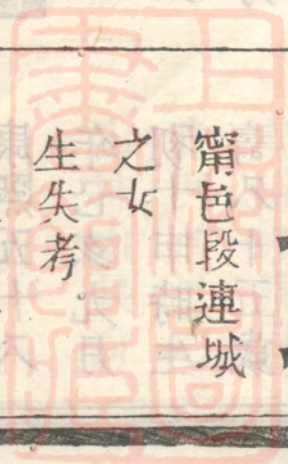 甯邑段連城
之女
生失考。